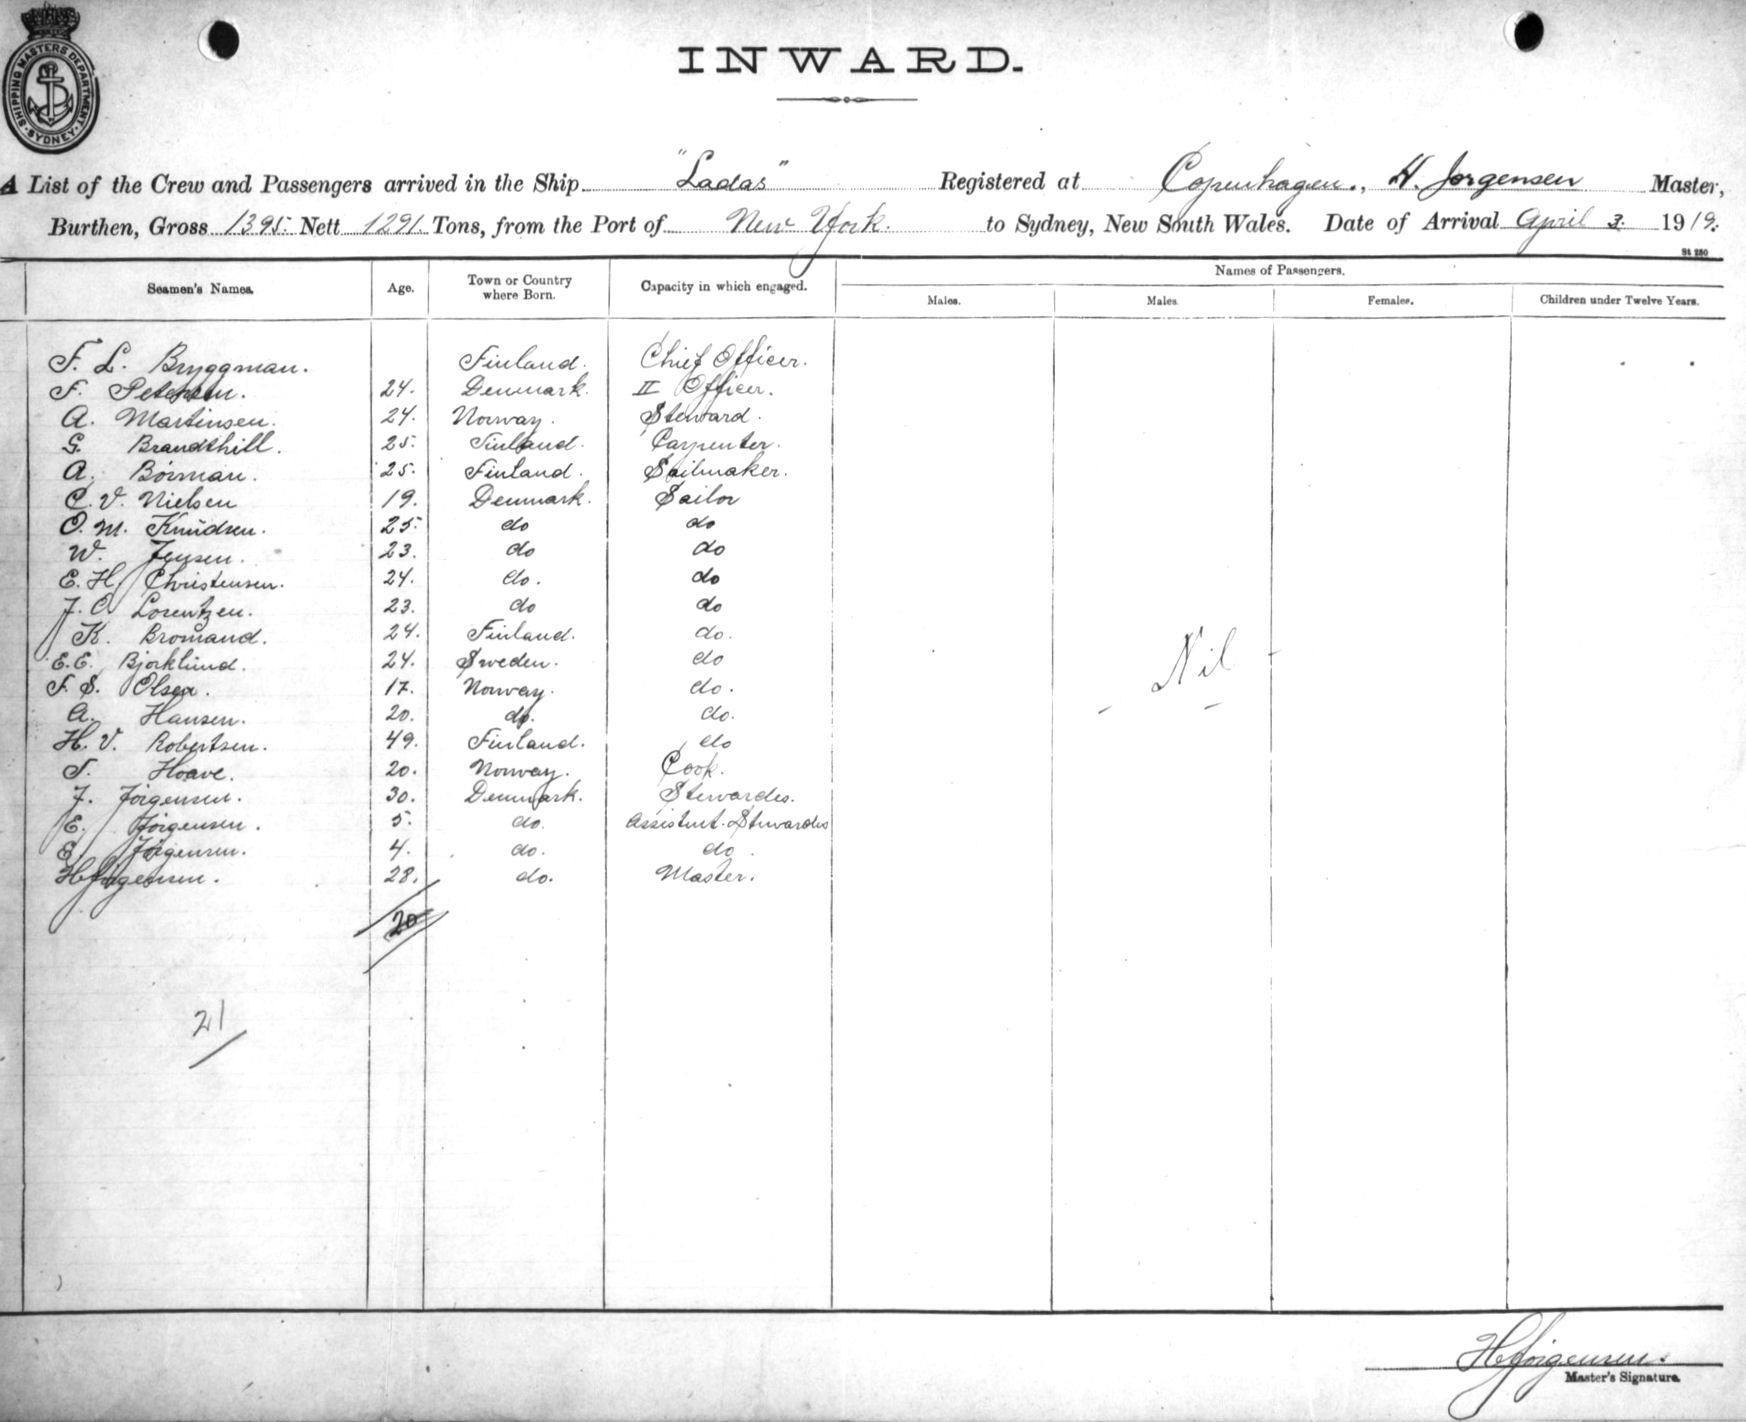 SHIPPING MASTERS DEPARTMENT. SYDNEY
INWARD.
A List of the Crew and Passengers arrived in the Ship "Ladas" Registered at Copenhagen., H. Jorgensen Master,
Burthen, Gross 1395. Nett 1291. Tons, from the Port of New York. to Sydney, New South Wales. Date of Arrival April 3. 1919.
St 250
Seamen's Names. Age. Town or Country where Born. Capacity in which engaged. Names of Passengers.
Males. Males. Females. Children under Twelve Years.
F. L. Bryggman. Finland. Chief Officer.
F. Petersen. 24. Denmark. II Officer.
A. Martinsen. 24. Norway. Steward.
G. Brandthill. 25. Finland. Carpenter.
A. Börman. 25. Finland. Sailmaker.
C. V. Nielsen 19. Denmark. Sailor
O. M. Knudsen. 25. do do
W. Jensen. 23. do do
E. H. Christensen. 24. do. do
J. C. Lorentzen. 23. do do
K. Bromand. 24. Finland. do.
E. E. Bjorklund. 24. Sweden. do
F. S. Olsen. 17. Norway. do.
A. Hansen. 20. do. do.
H. V. Robertsen. 49. Finland. do
T. Hoave. 20. Norway. Cook.
J. Jörgensen. 30. Denmark. Stewardes.
E. Jörgensen. 5. do. Assistent. Stewardes
E. Jörgensen. 4. do. do.
H Jörgensen. 28. do. Master.
20
21
Nil
H Jörgensen.
Master's Signature.